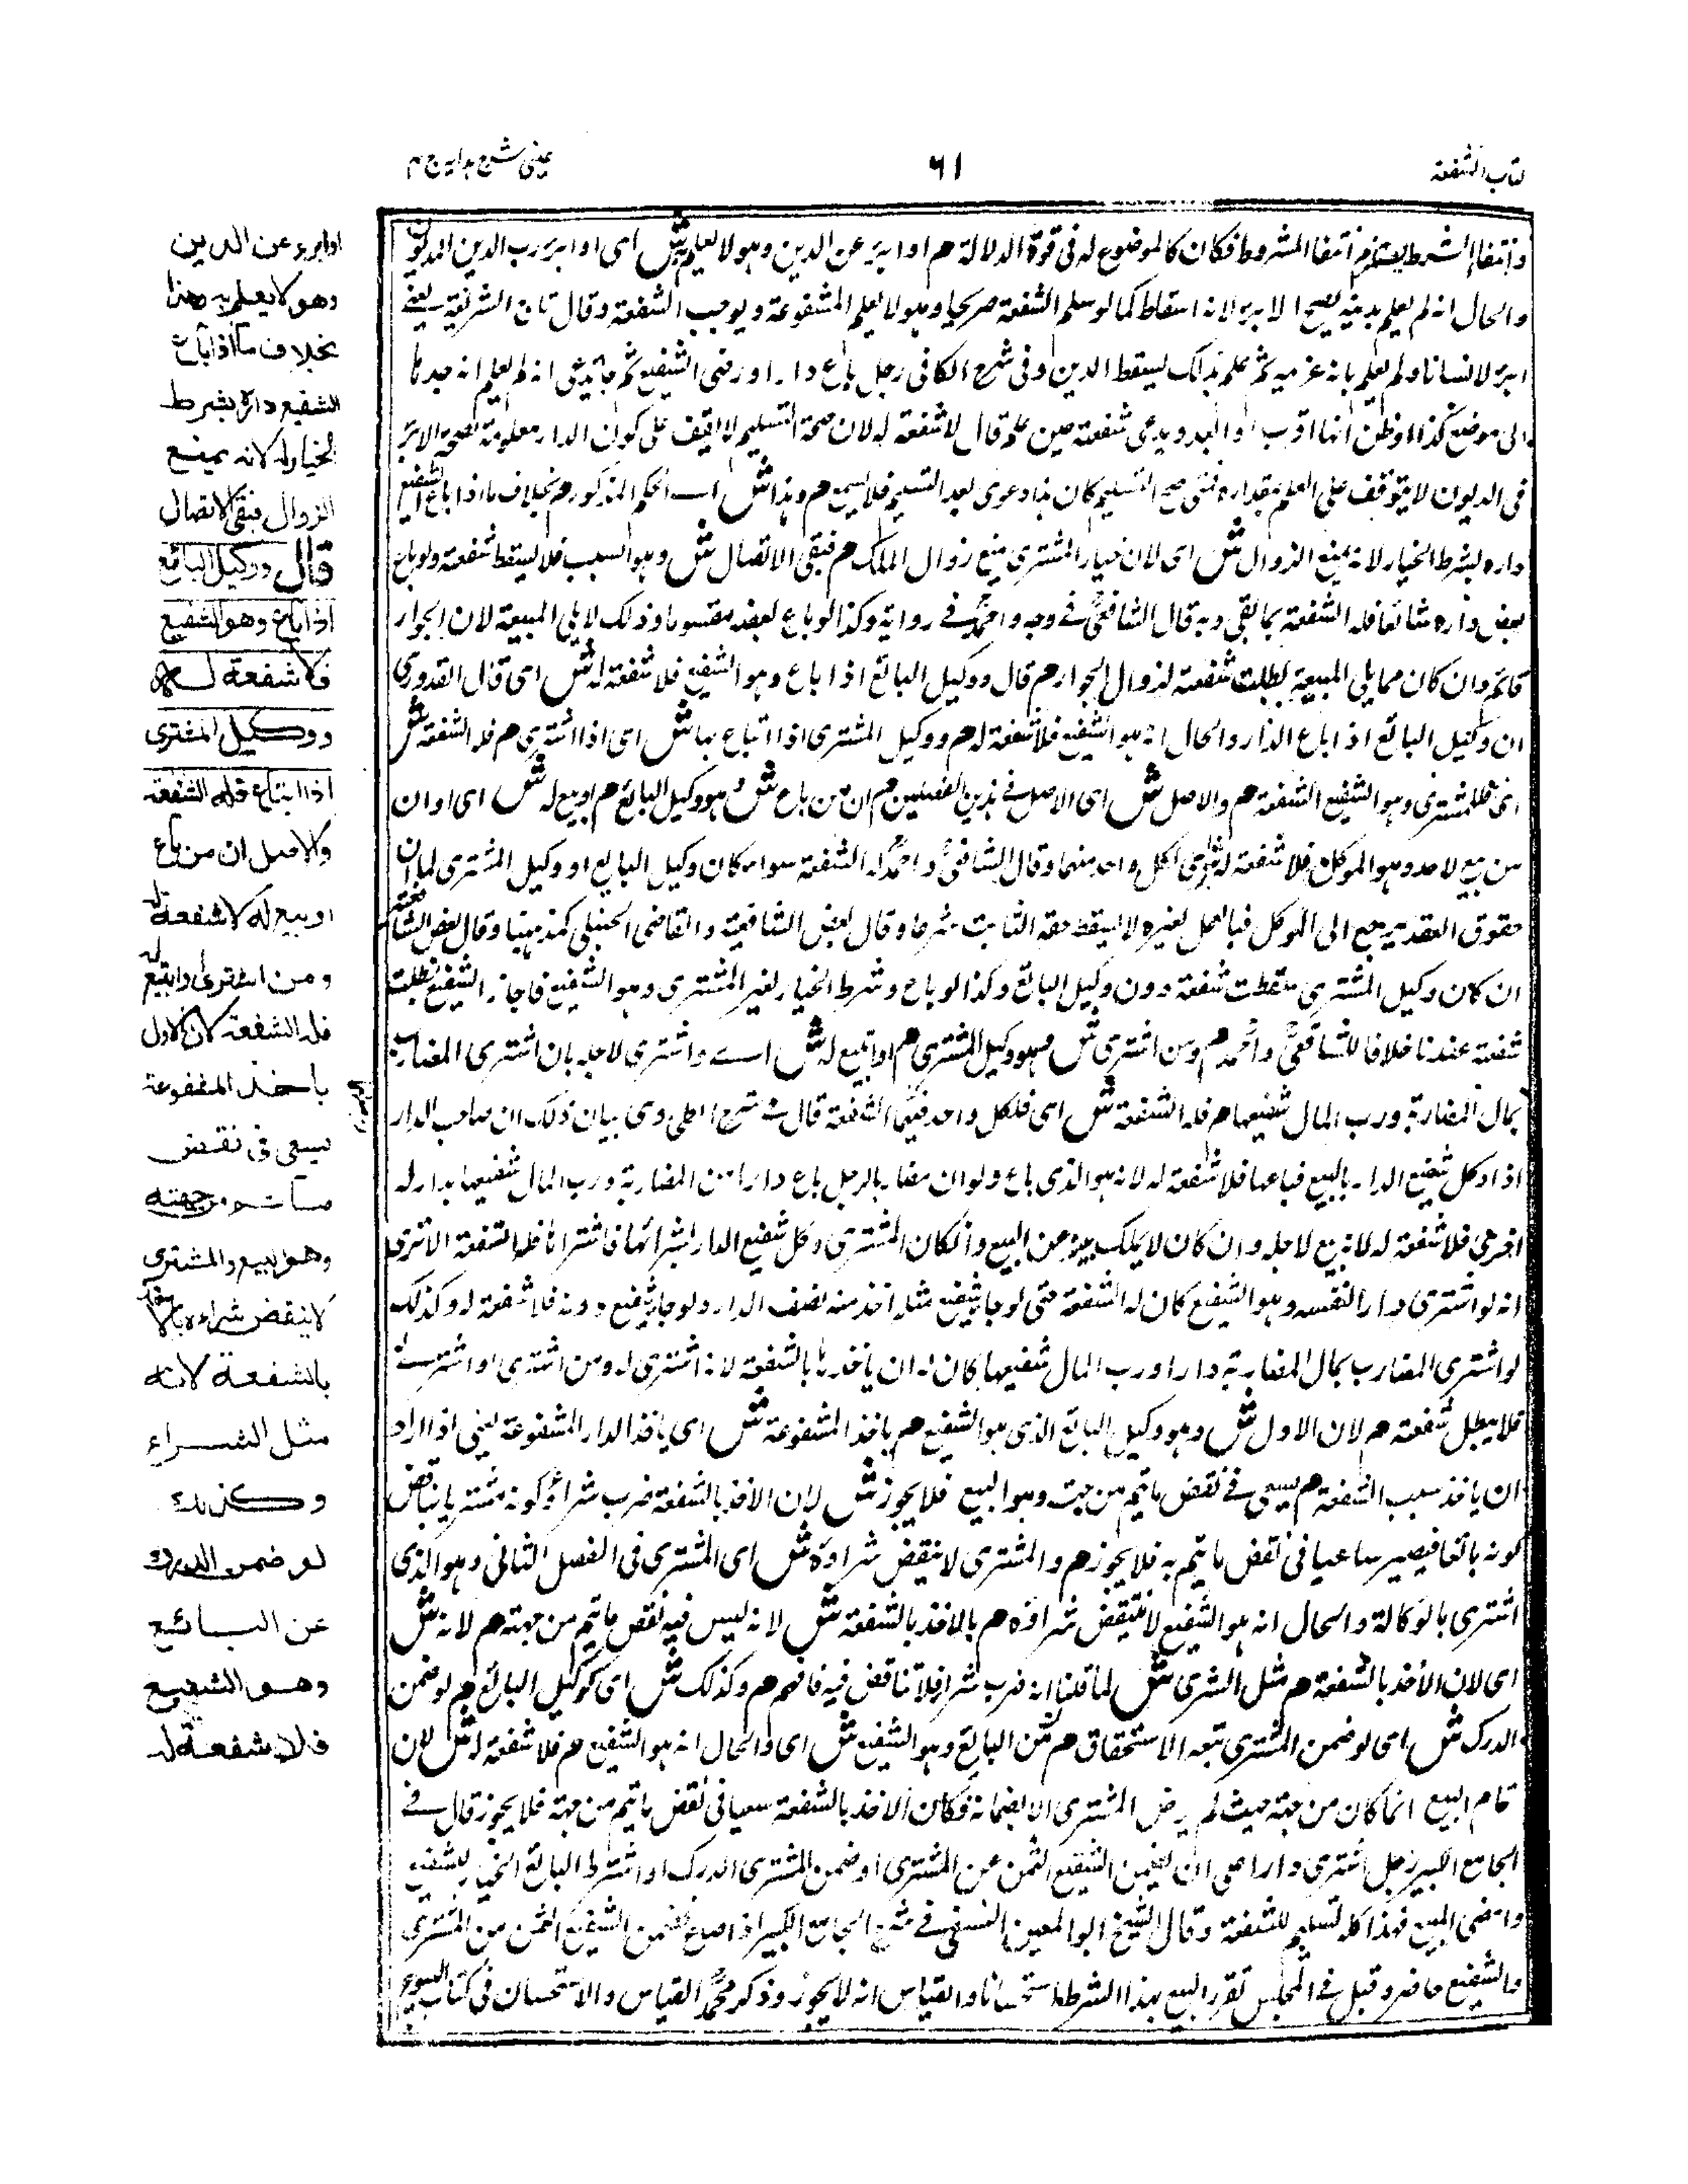 كتاب الشفعة
٦١
عينى شرح هداية ج ٣
وانتفاء الشرط يستلزم انتفاء المشروط فكان كالموضوع له فى قوة الدلالة م او ابرئ عن الدين وهو لا يعلم ش اى او ابرئ رب الدين المديون
والحال انه لم يعلم بدينه يصح الابراء لانه اسقاط كما لو سلم الشفعة صريحا وهو لا يعلم المشفوعة ويوجب الشفعة وقال تاج الشريعة يعنى
ابرأ انسانا ولم يعلم بانه غريمه ثم علم بذلك يسقط الدين وفى شرح الكافى رجل باع دارا ورضى الشفيع ثم جاء يدعى انه لم يعلم انه حدها
الى موضع كذا او ظن انها اقرب او ابعد ويدعى شفعته حين علم قال لا شفعة له لان صحة التسليم لا تقف على كون الدار معلومة لصحة الابراء
فى الديون لا يتوقف على العلم بمقداره فمتى صح التسليم كان هذا دعوى بعد التسليم فلا يسمع م وهذا ش اى الحكم المذكور م بخلاف ما اذا باع الشفيع
داره بشرط الخيار لانه يمنع الزوال ش اى لان خيار المشترى يمنع زوال الملك م فبقى الاتصال ش وهو السبب فلا يسقط شفعته ولو باع
بعض داره شائعا فله الشفعة بما بقى وبه قال الشافعى فى وجه واحمد فى رواية وكذا لو باع بعضه مقسوما وذلك لا يلى المبيعة لان الجوار
قائم وان كان مما يلى المبيعة بطلت شفعته لزوال الجوار م قال ووكيل البائع اذا باع وهو الشفيع فلا شفعة له ش اى قال القدورى
ان وكيل البائع اذا باع الدار والحال انه هو الشفيع فلا شفعة له م ووكيل المشترى اذا ابتاع بها ش اى اذا اشترى م فله الشفعة ش
اى فللمشترى وهو الشفيع الشفعة م والاصل ش اى الاصل فى هذين الفصلين م ان من باع ش وهو وكيل البائع م او بيع له ش اى او ان
من بيع لاجله وهو الموكل فلا شفعة له ش اى لكل واحد منهما وقال الشافعى واحمد له الشفعة سواء كان وكيل البايع او وكيل المشترى لما ان
حقوق العقد يرجع الى الموكل فبالعمل لغيره لا يسقط حقه الثابت شرعا وقال بعض الشافعية والقاضى الحنبلى كمذهبنا وقال بعض الشافعية
ان كان وكيل المشترى سقطت شفعته دون وكيل البائع وكذا لو باع وشرط الخيار لغير المشترى وهو الشفيع فاجاز الشفيع بطلت
شفعته عندنا خلافا للشافعى واحمد م ومن اشترى ش فهو وكيل المشترى م او ابتيع له ش اى واشترى لاجله بان اشترى المضارب
بمال المضاربة ورب المال شفيعها م فله الشفعة ش اى فلكل واحد منهما الشفعة قال فى شرح الطحاوى بيان ذلك ان صاحب الدار
اذا وكل شفيع الدار بالبيع فباعها فلا شفعة له لانه هو الذى باع ولو ان مضاربا لرجل باع دارا من المضاربة ورب المال شفيعها بدار له
اخرى فلا شفعة له لانه بيع لاجله وان كان لا يملك منعه من البيع وان كان المشترى وكل شفيع الدار بشرائها فاشتراها فله الشفعة الا ترى
انه لو اشترى دارا لنفسه وهو الشفيع كان له الشفعة حتى لو جاء شفيع مثله اخذ منه نصف الدار ولو جاء شفيع دونه فلا شفعة له وكذلك
لو اشترى المضارب بمال المضاربة دارا ورب المال شفيعها كان له ان ياخذها بالشفعة لانه اشترى له ومن اشترى او اشترى له
فلا يبطل شفعته م لان الاول ش وهو وكيل البائع الذى هو الشفيع م ياخذ المشفوعة ش اى ياخذ الدار المشفوعة يعنى اذا اراد
ان ياخذ بسبب الشفعة م يسعى فى نقض ما تم من جهته وهو البيع فلا يجوز ش لان الاخذ بالشفعة ضرب شراء وكونه مشتريا يناقض
كونه بائعا فيصير ساعيا فى نقض ما تم به فلا يجوز م والمشترى لا ينقض شراؤه ش اى المشترى فى الفصل الثانى وهو الذى
اشترى بالوكالة والحال انه هو الشفيع لا ينتقض شراؤه م بالاخذ بالشفعة ش لانه ليس فيه نقض ما تم من جهته م لانه ش
اى لان الاخذ بالشفعة م مثل الشرى ش لما قلنا انه ضرب شراء فلا تناقض فيه فافهم م وكذلك ش اى كوكيل البائع م لو ضمن
الدرك ش اى لو ضمن المشترى تبعة الاستحقاق م عن البائع وهو الشفيع ش اى والحال انه هو الشفيع م فلا شفعة له ش لان
تمام البيع انما كان من جهته حيث لم يرض المشترى الا بضمانه فكان الاخذ بالشفعة سعيا فى نقض ما تم من جهته فلا يجوز قال فى
الجامع الكبير رجل اشترى دارا على ان يضمن الشفيع الثمن عن المشترى او ضمن المشترى الدرك او اشترط البائع الخيار للشفيع
وامضى البيع فهذا كله تسليم للشفعة وقال الشيخ ابو المعين النسفى فى شرح الجامع الكبير اذا باع بضمن الشفيع الثمن من المشترى
والشفيع حاضر وقبل فى المجلس تقرر البيع بهذا الشرط استحسانا والقياس انه لا يجوز وذكر محمد القياس والاستحسان فى كتاب البيوع
او ابرء عن الدين
وهو لا يعلم به هذا
بخلاف ما اذا باع
الشفيع داره بشرط
الخيار له لانه يمنع
الزوال فبقى الاتصال
قال ووكيل البائع
اذا باع وهو الشفيع
فلا شفعة له
ووكيل المشترى
اذا ابتاع فله الشفعة
والاصل ان من باع
او بيع له لا شفعة له
ومن اشترى او ابتيع له
فله الشفعة لان الاول
باخذ المشفوعة
يسعى فى نقض
ما تم من جهته
وهو البيع والمشترى
لا ينقض شراءه بالاخذ
بالشفعة لانه
مثل الشراء
وكذلك
لو ضمن الدرك
عن البائع
وهو الشفيع
فلا شفعة له